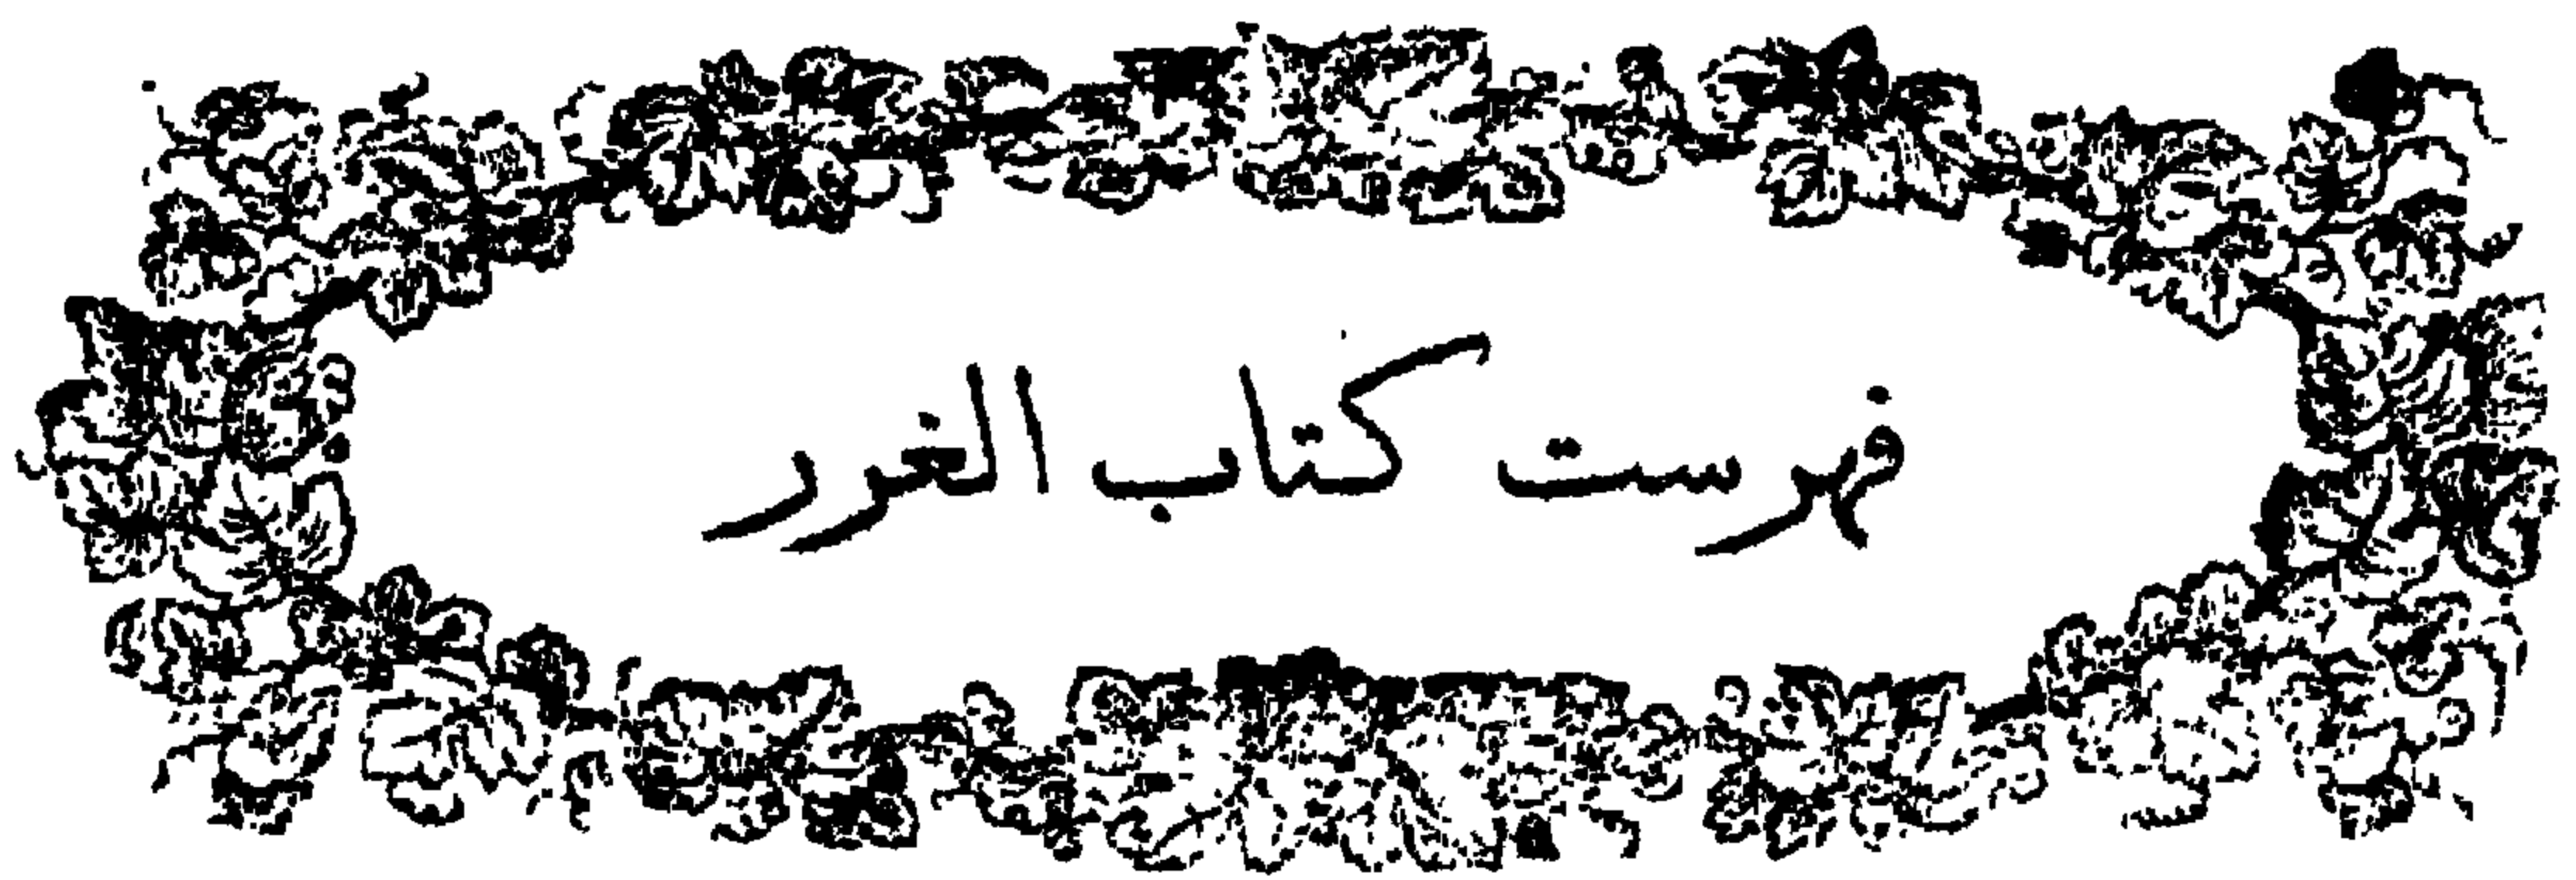 فهرست كتاب الغرر